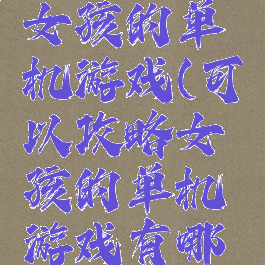 女孩的单
机游戏(可
以攻略女
孩的单机
游戏有哪